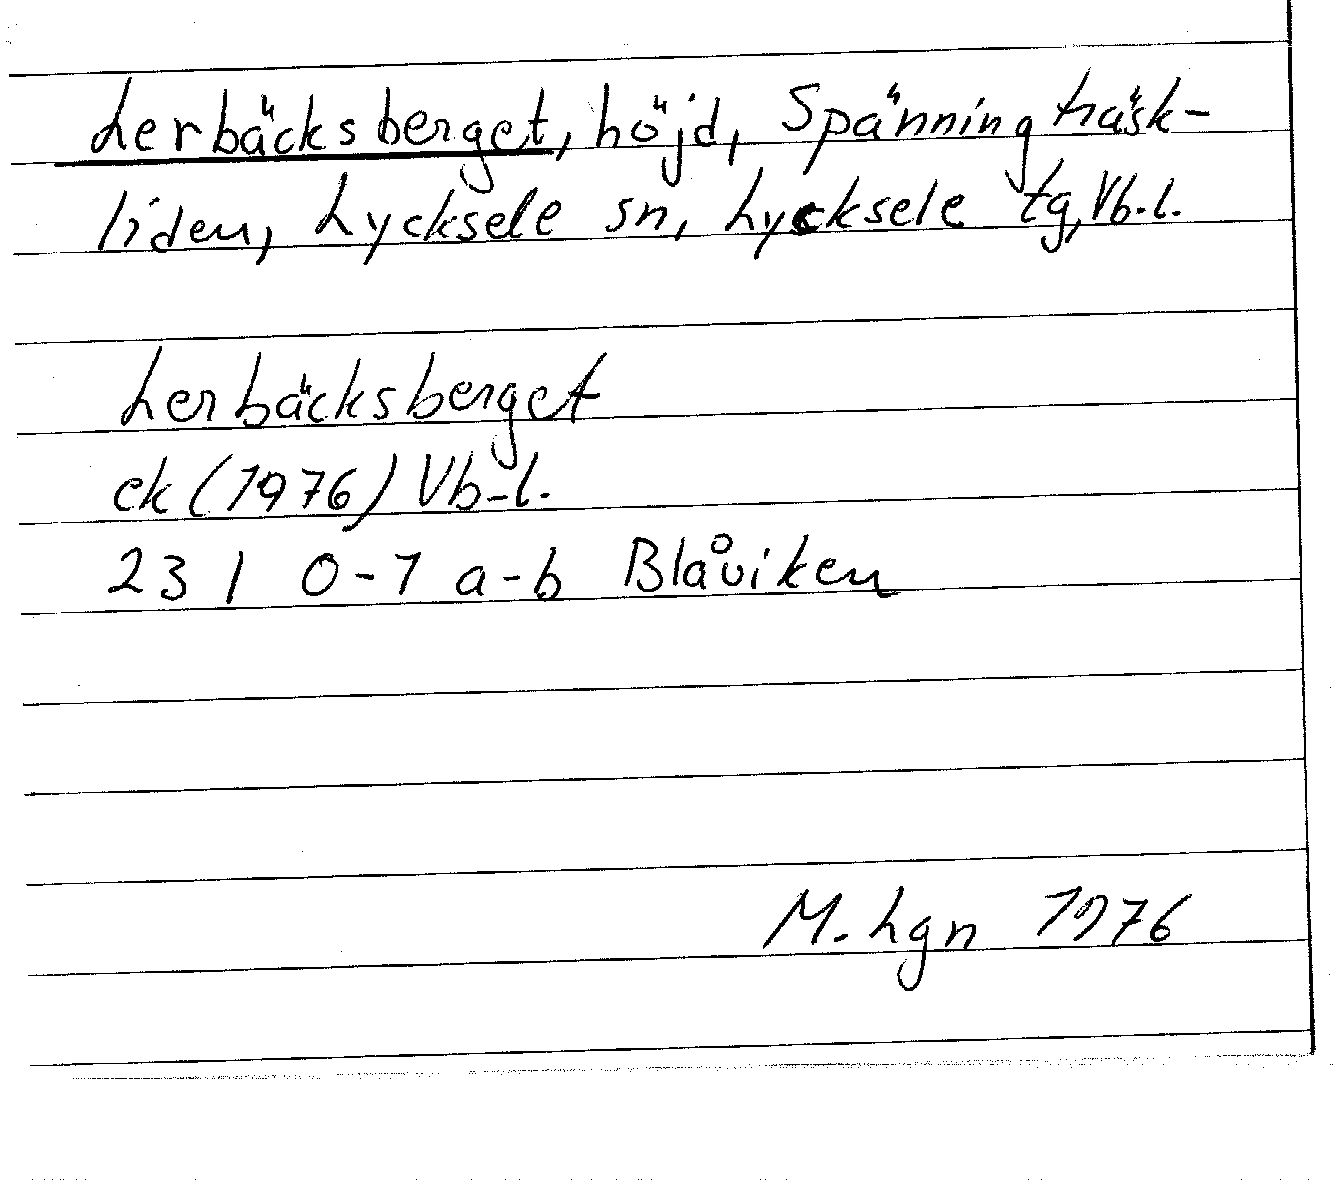 Lerbäcksberget, höjd, Spänningträsk-
liden, Lycksele sn, Lycksele tg, Vb.l.
Lerbäcksberget
ek (1976) Vb-l.
23 I 0-1 a-b Blåviken
M. Lgn 1976